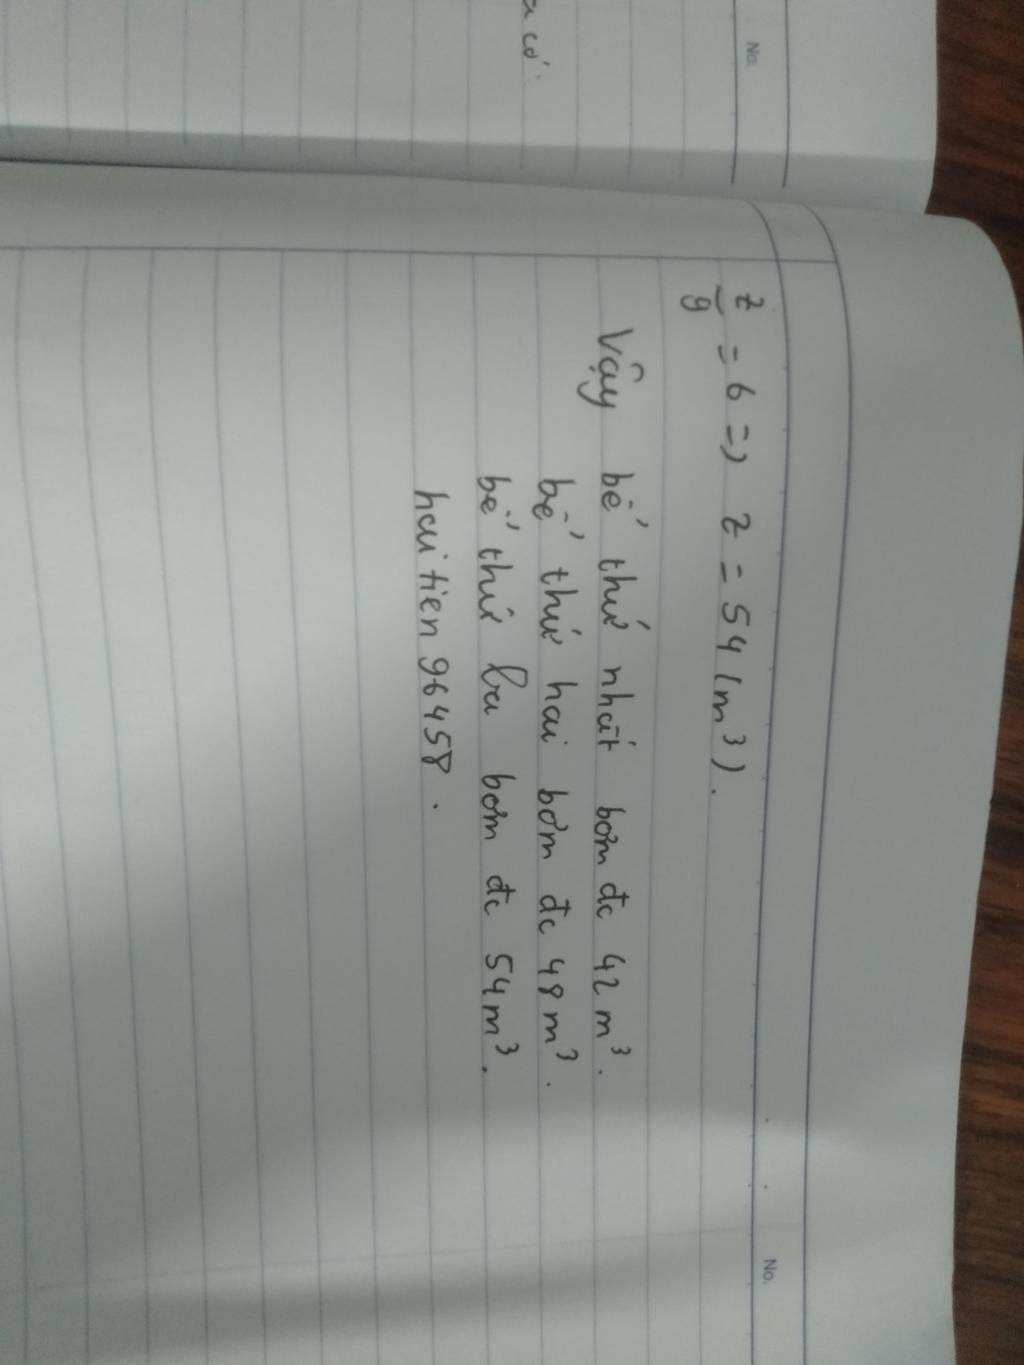 No.
a có:
z/9 = 6 => z = 54 (m³).
Vậy bể thứ nhất bơm đc 42 m³.
bể thứ hai bơm đc 48 m³.
bể thứ ba bơm đc 54 m³.
hai tien 96458.
No.